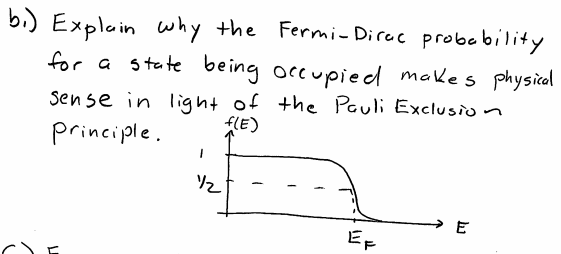 b.) Explain why the Fermi-Dirac probability
for a state being occupied makes physical
sense in light of the Pauli Exclusion
Principle.
f(E)
1
1/2
E
E_F